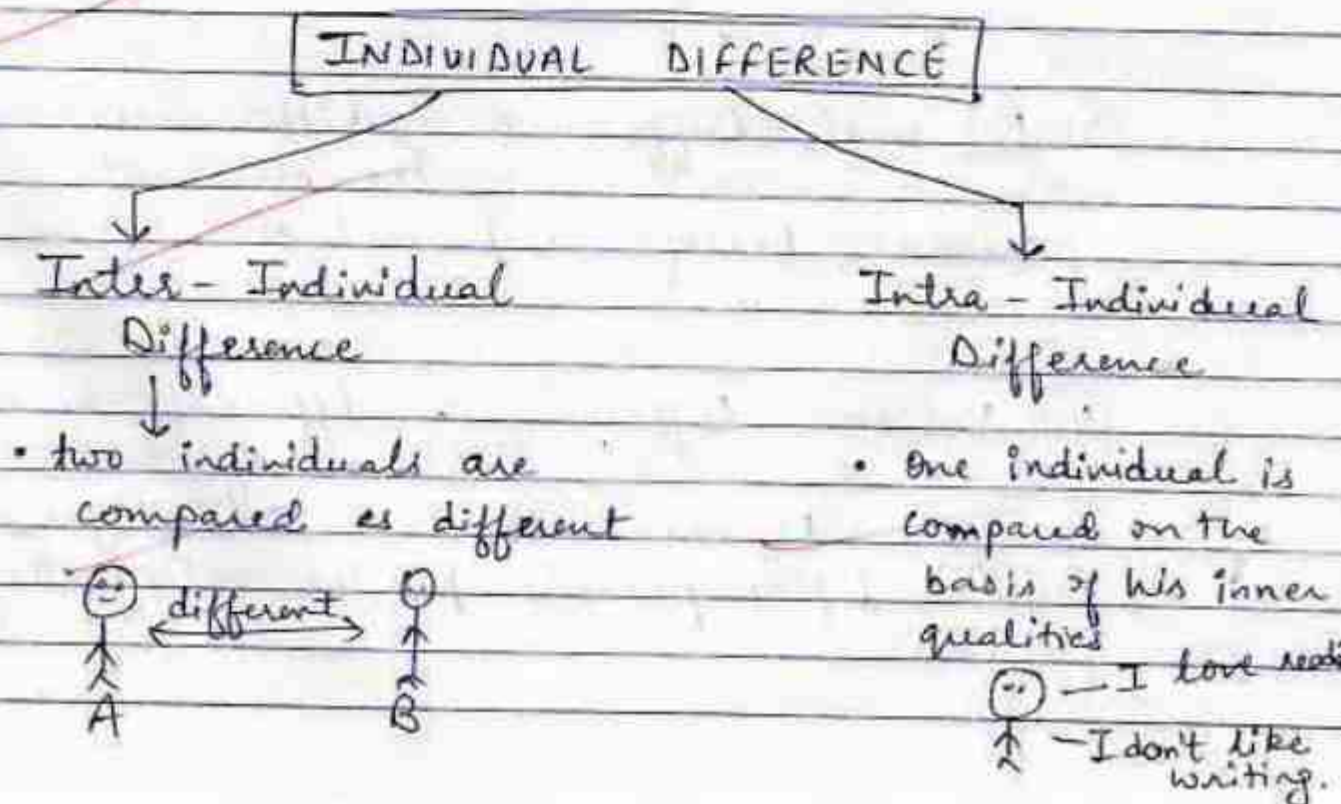 INDIVIDUAL DIFFERENCE
Inter - Individual
Difference
• two individuals are
compared as different
different
A
B
Intra - Individual
Difference
• One individual is
compared on the
basis of his inner
qualities
- I love readi
- I don't like
writing.